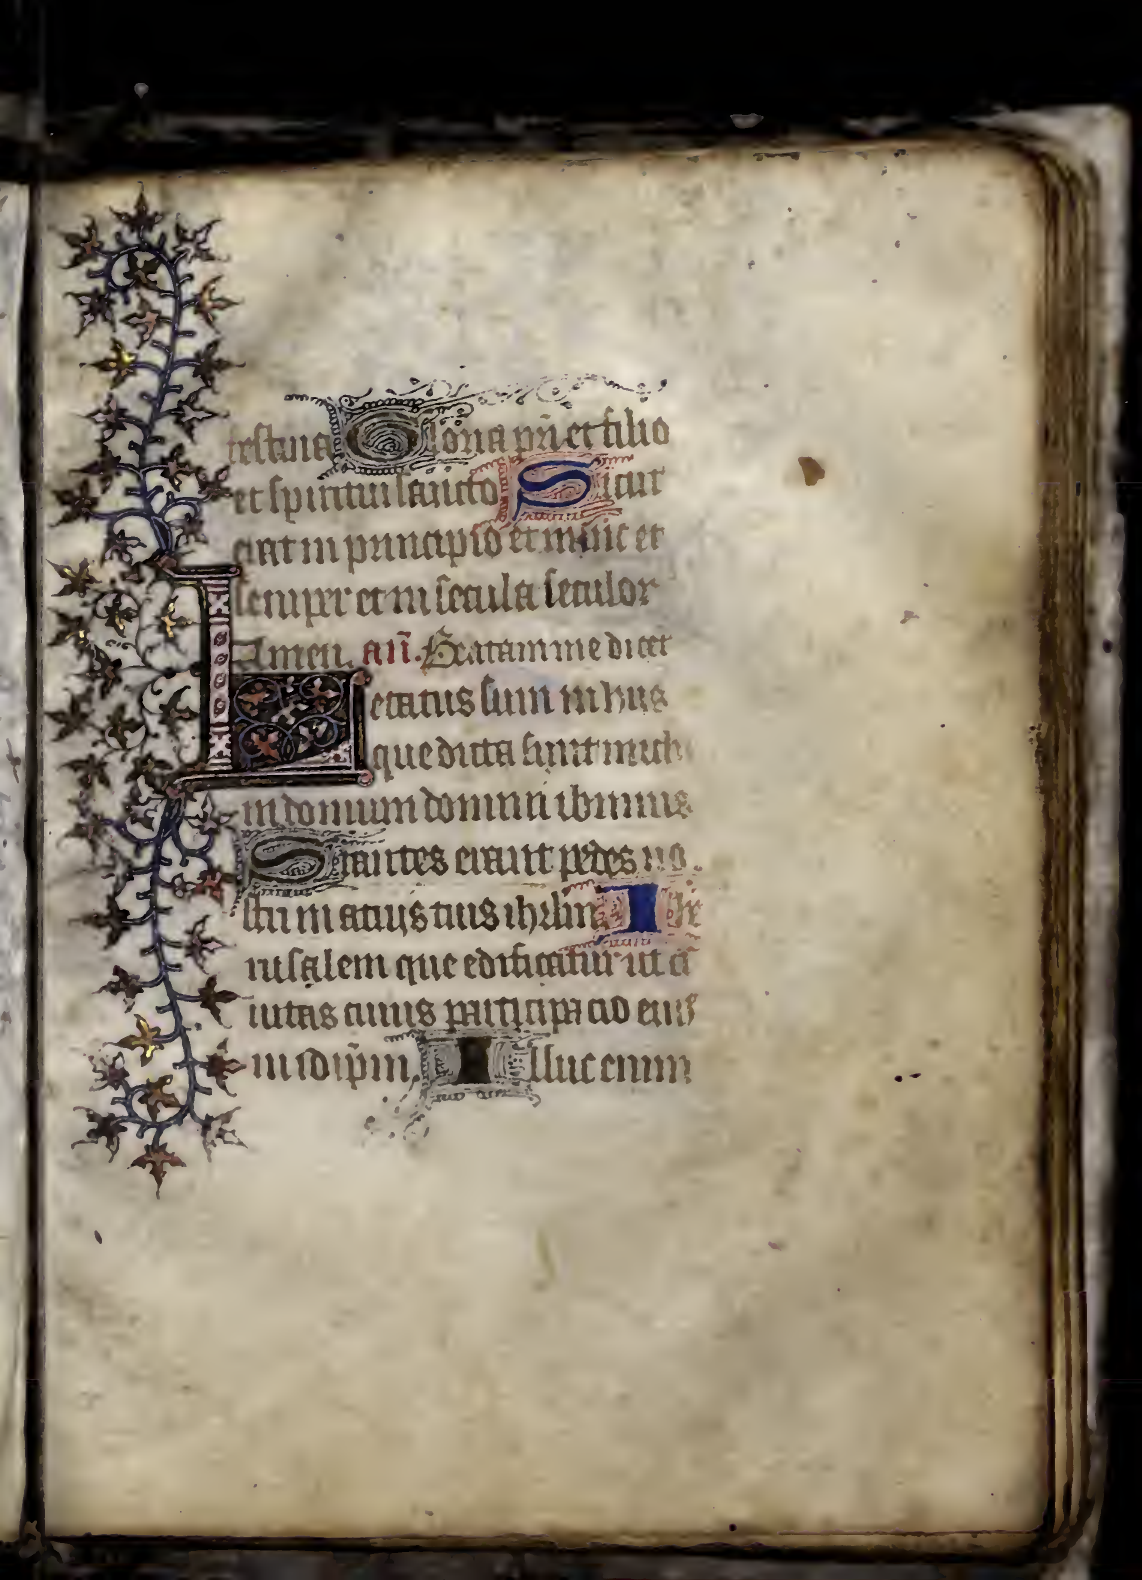 festina Gloria pri et filio
et spiritui sancto Sicut
erat in principio et nunc et
semper et in secula seculor
Amen. añ. Beatam me dicet
Letatus sum in hiis
que dicta sunt michi
in domum domini ibimus
Stantes erant pedes no
stri in atriis tuis ihrlm Ihe
rusalem que edificatur ut ci
uitas cuius participacio eius
in idipm Illuc enim